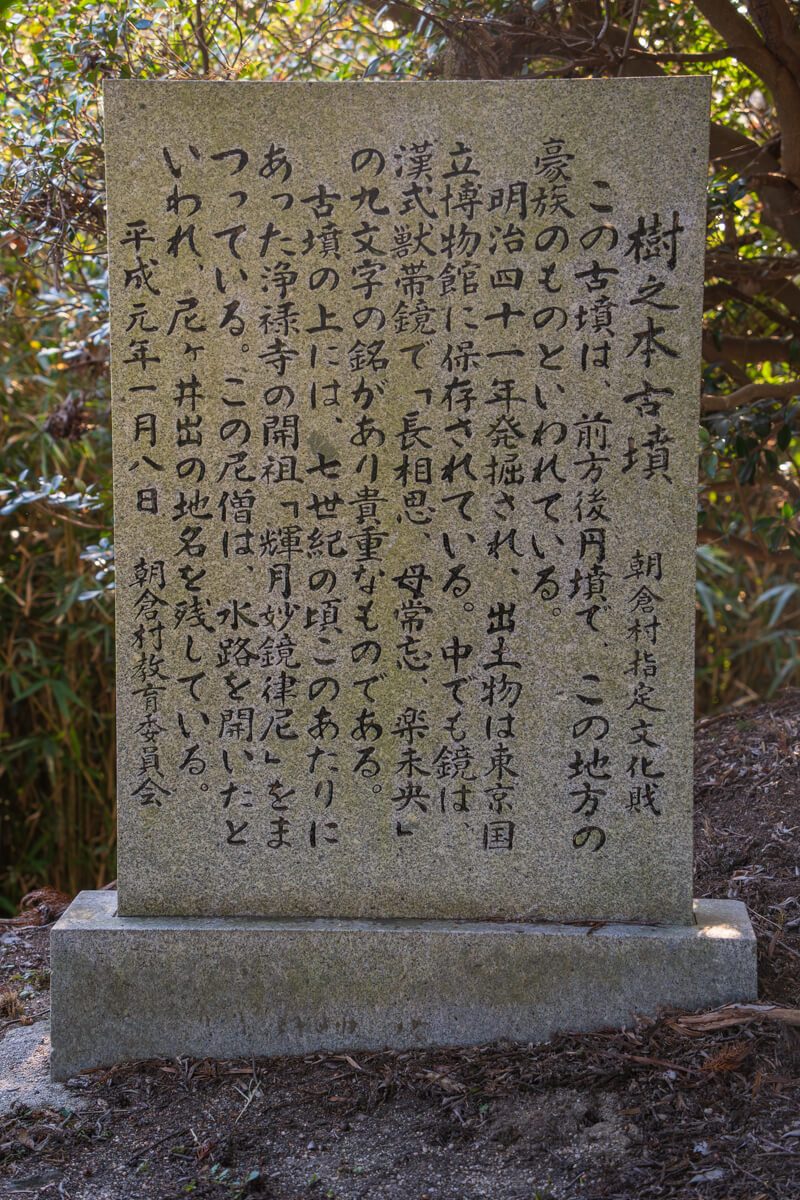 樹之本古墳 朝倉村指定文化財
この古墳は、前方後円墳で、この地方の
豪族のものといわれている。
明治四十一年発掘され、出土物は東京国
立博物館に保存されている。中でも鏡は、
漢式獣帯鏡で「長相思、母常忘、楽未央」
の九文字の銘があり貴重なものである。
古墳の上には、七世紀の頃このあたりに
あった浄禄寺の開祖「輝月妙鏡律尼」をま
つっている。この尼僧は、水路を開いたと
いわれ、尼ヶ井出の地名を残している。
平成元年一月八日 朝倉村教育委員会